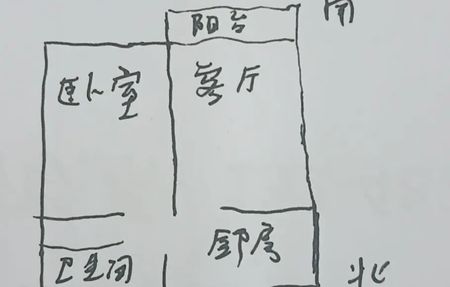 阳台 南
卧室 客厅
房
卫生间 北